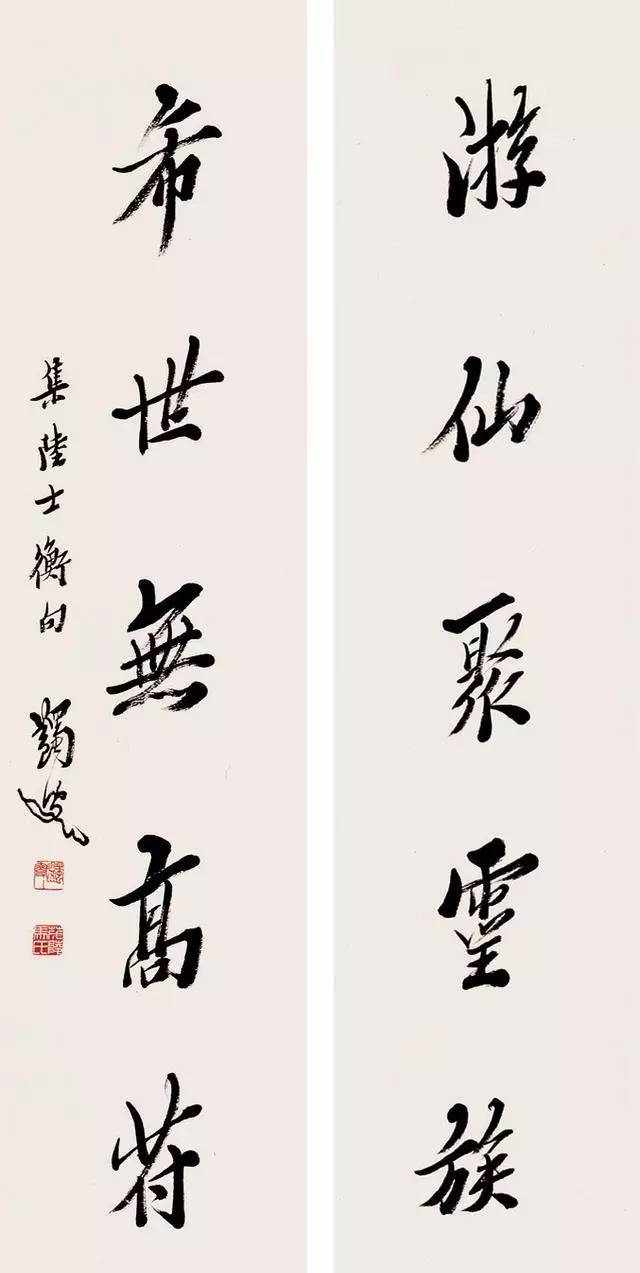 游仙聚靈族
希世無高符
集陸士衡句
蠲叟